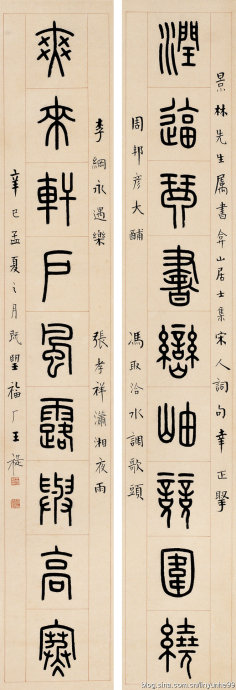 景林先生屬書弇山居士集宋人詞句幸正擘
潤逼琴書巒岫競圍繞
周邦彥大酺 馮取洽水調歌頭
李綱永遇樂 張孝祥瀟湘夜雨
爽來軒户風露與高寒
辛巳孟夏之月既望福厂王禔
blog.sina.com.cn/linyunhe99